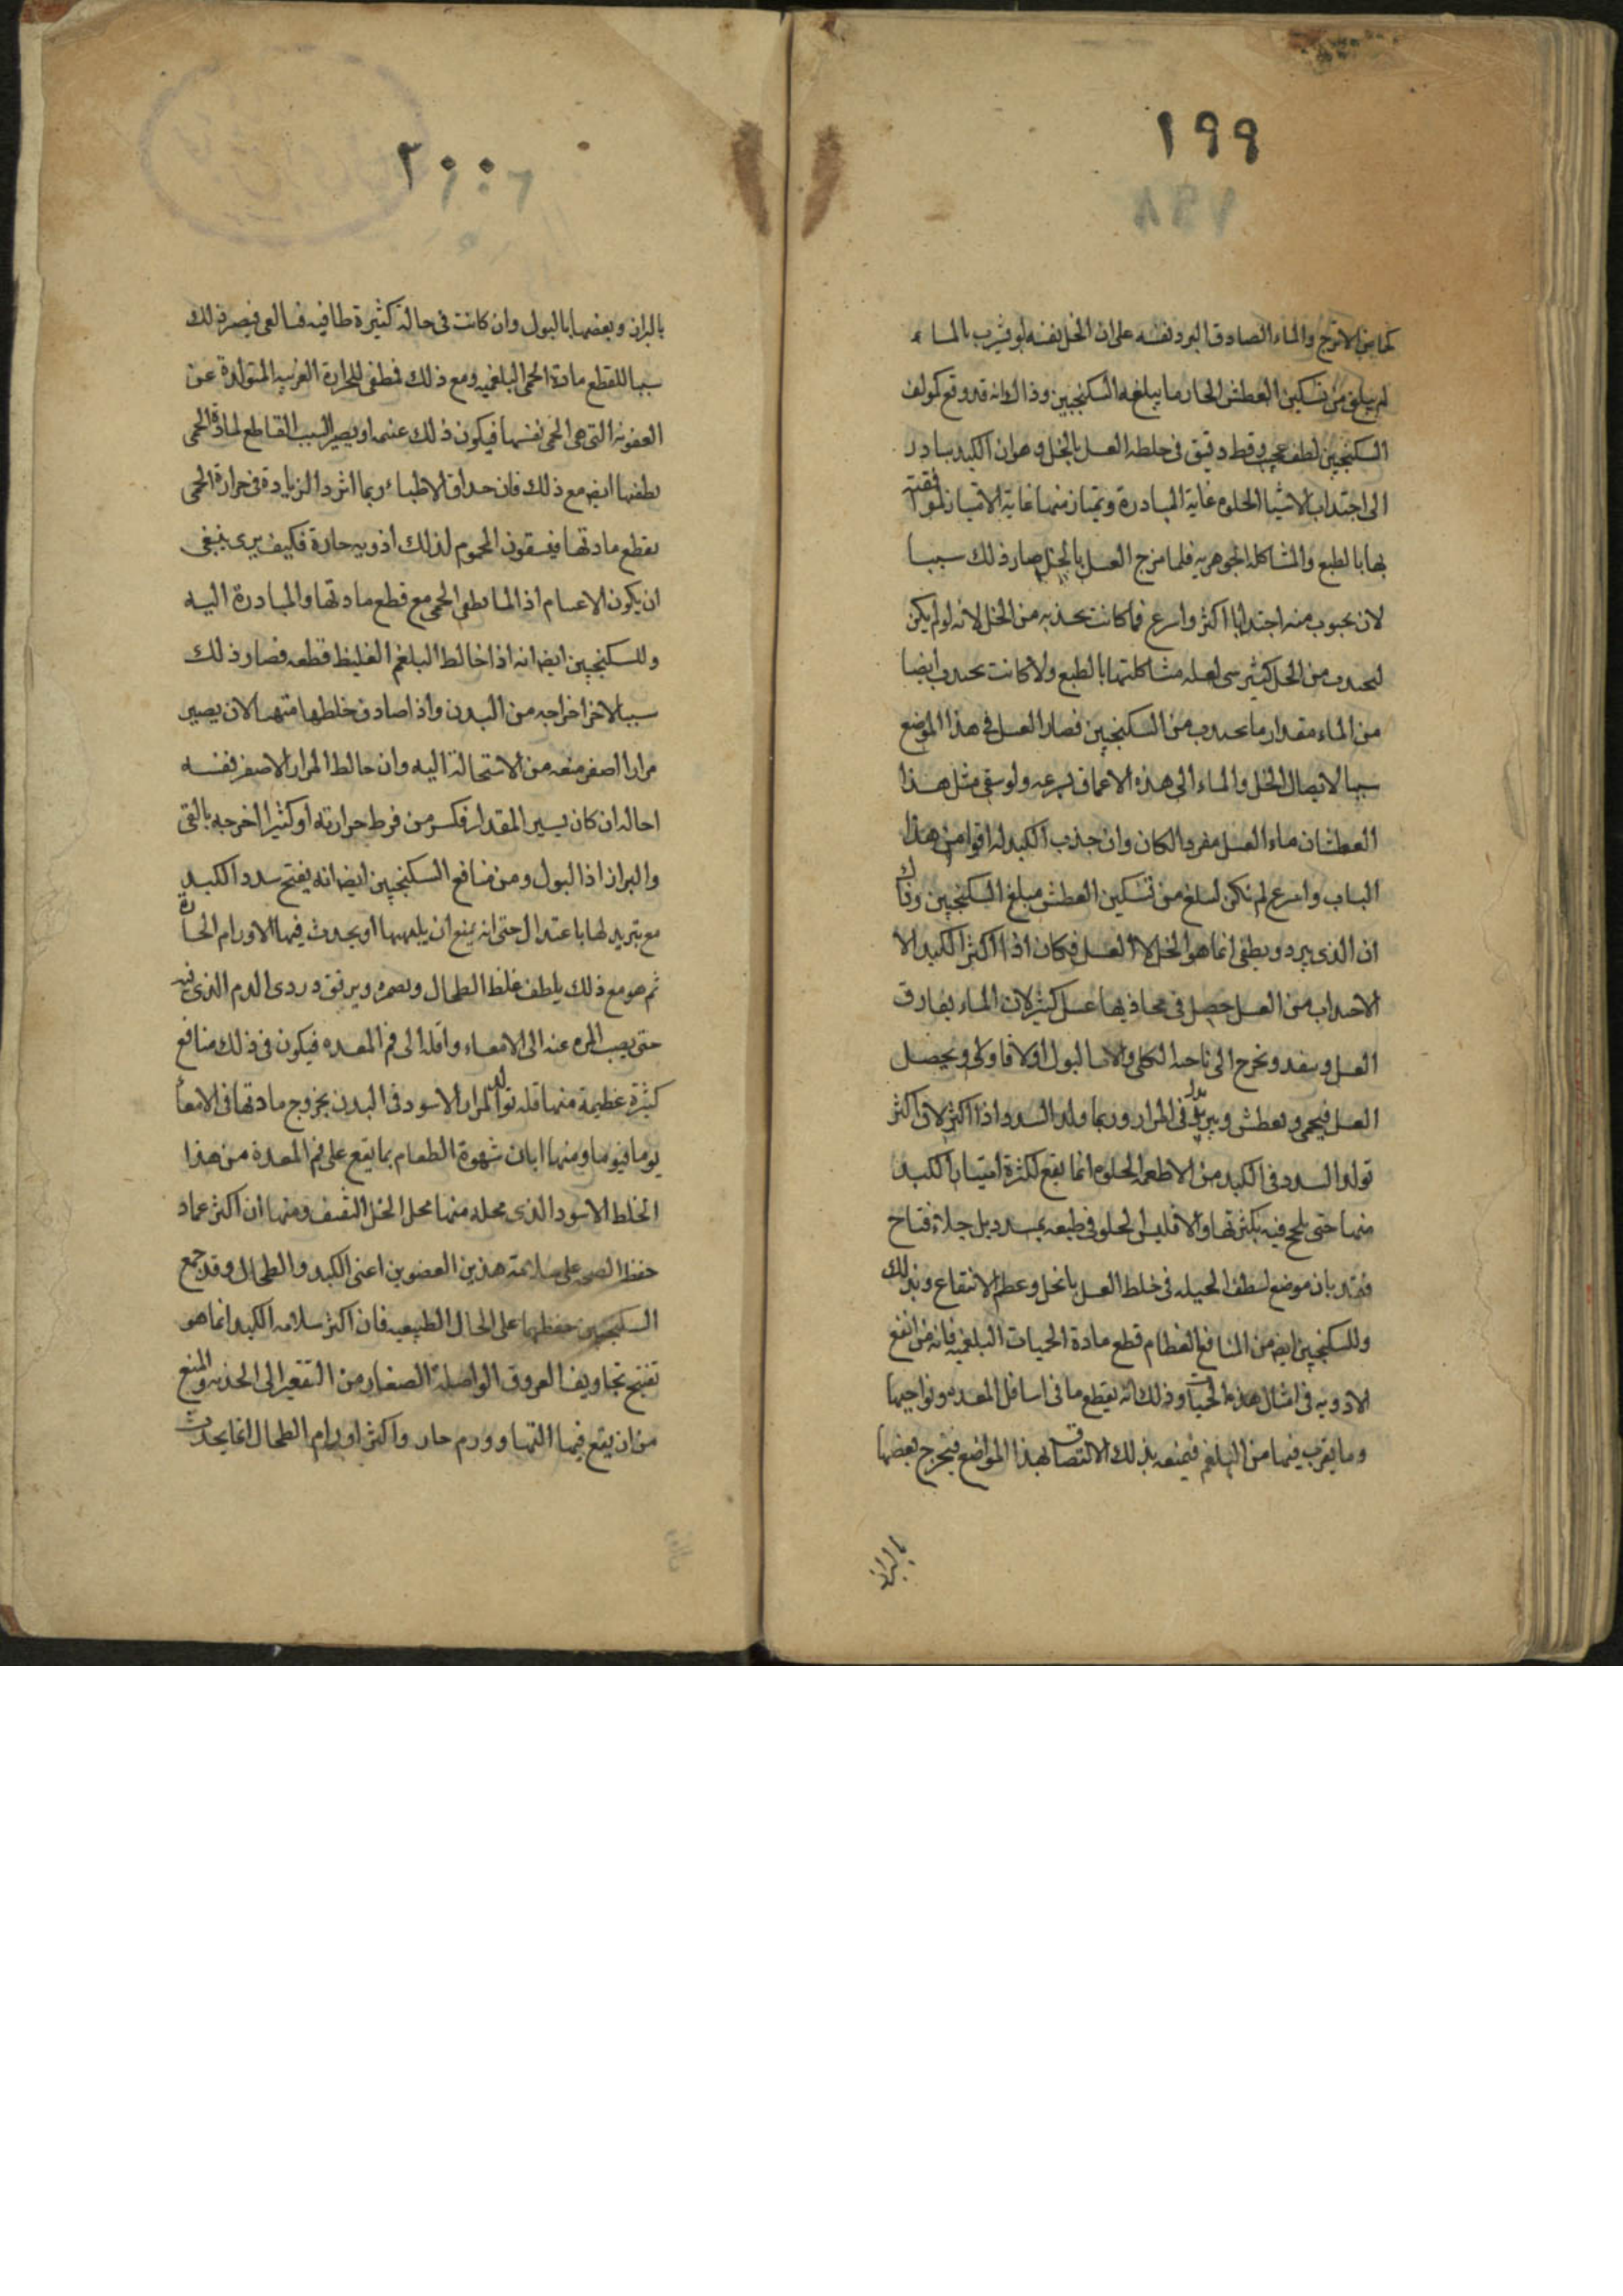 ١٩٩
كحماض الاترج والماء الصادق البرد نفسه على ان الخل نفسه لو شرب بالماء
لم يبلغ من تسكين العطش الحار ما يبلغه السكنجبين وذاك انه قد وقع
السكنجبين لطف عجيب دقيق فى خلطه العسل بالخل وهو ان الكبد يبادر
الى اجتداب الاشيا الحلوه غاية المبادرة وتمتاز منها غاية الامتياز لموافقته
بها بالطبع والمشاكله الجوهريه فلما مزج العسل بالخل صار ذلك سببا
لان منه اجتدابا اكثر واسرع مما كانت تجذبه من الخل لانه لو لم يكن
من الخل كثير شى لعله مشاكلتها بالطبع ولا كانت ايضا
من الماء مقدار ما من السكنجبين فصار العسل فى هذا الموضع
سببا لايصال الخل والماء الى هذه الاعماق بسرعه ولو سقى مثل هذا
العطشان ماء العسل مفردا لكان وان جذب الكبد له اقوا من هذا
الباب واسرع لم يكن لبلغ من تسكين العطش مبلغ السكنجبين وذاك
ان الذى يبرد ويطفى انما هو الخل لا العسل فكان اذا اكثر الكبد
الاجتداب من العسل حصل فى عسل كثير لان الماء يفارق
العسل وينفد ويخرج الى ناحيه الكلى البول اولا فاولا ويحصل
العسل فيحمى ويعطش ويزيد فى المرار وربما ولد السدد اذا اكثر لان اكثر
تولد السدد فى الكبد من الاطعمه الحلوه انما يقع لكثرة امتيار الكبد
منها حتى فيه بكثرتها والا فليس الحلو فى طبعه يسدد بل جلاء فتاح
فقد بان موضع لطف الحيله فى خلط العسل بالخل وعظم الانتفاع وبذلك
وللسكنجبين ايضه من المنافع العظام قطع مادة الحميات البلغميه فانه من انفع
الادويه فى امثال هذه الحميات وذلك انه يقطع ما فى اسافل المعده ونواحيها
وما يقرب منها من البلغم فيمنعه بذلك الالتصاق بهذا المواضع فيخرج بعضها
بالبراز
٢٠٠
بالبراز وبعضها بالبول وان كانت فى حالة كثيرة طافيه فبالقى فيصير ذلك
سببا للقطع مادة الحمى البلغميه ومع ذلك فمطفى للحرارة الغريبه المتولدة عن
العفونه التى هى الحمى نفسها فيكون ذلك عنه او يصير السبب القاطع لمادة الحمى
يطفيها ايضه مع ذلك فان حداق الاطباء ربما اثروا الزيادة فى حرارة الحمى
بقطع مادتها فيسقون المحموم لذلك ادويه حارة فكيف يرى ينبغى
ان يكون الاغتنام اذا لما يطفى الحمى مع قطع مادتها والمبادرة اليه
وللسكنجبين ايضه انه اذا خالط البلغم الغليظ قطعه فصار ذلك
سببا لاخراجه من البدن واذا صادف خلطها متهيا لان يصير
مرارا اصفر منعه من الاستحالة اليه وان خالط المرار الاصفر نفسه
احاله ان كان يسير المقدار فكسر من فرط حرارته او كثيرا اخرجه بالقى
والبراز اذا البول ومن منافع السكنجبين ايضه انه يفتح سدد الكبد
مع تبريد لها باعتدال حتى انه يمنع ان يلهبها او يحدث فيها الاورام الحارة
ثم هو مع ذلك يلطف غلظ الطحال ويرقق دردى الدم الذى فيه
حتى يصب المره عنه الى الامعاء واقله الى فم المعده فيكون فى ذلك منافع
كثيرة عظيمة منها قله تولد المرار الاسود فى البدن بخروج مادتها فى الامعا
يوما فيوما ومنها ابان شهوة الطعام بما يقع على فم المعدة من هذا
الخلط الاسود الذى محله منها محل الخل الثقيف ومنها ان اكثر عماد
حفظ الصحه على سلامة هذين العضوين اعنى الكبد والطحال وقد جمع
السكنجبين حفظهما على الحال الطبيعيه فان اكثر سلامه الكبد انما هو
تفتيح تجاويف العروق الواصلة الصغار من التقعير الى الحدبه والمنع
من ان يقع فيها التهاب وورم حار واكثر اورام الطحال انما يحدث